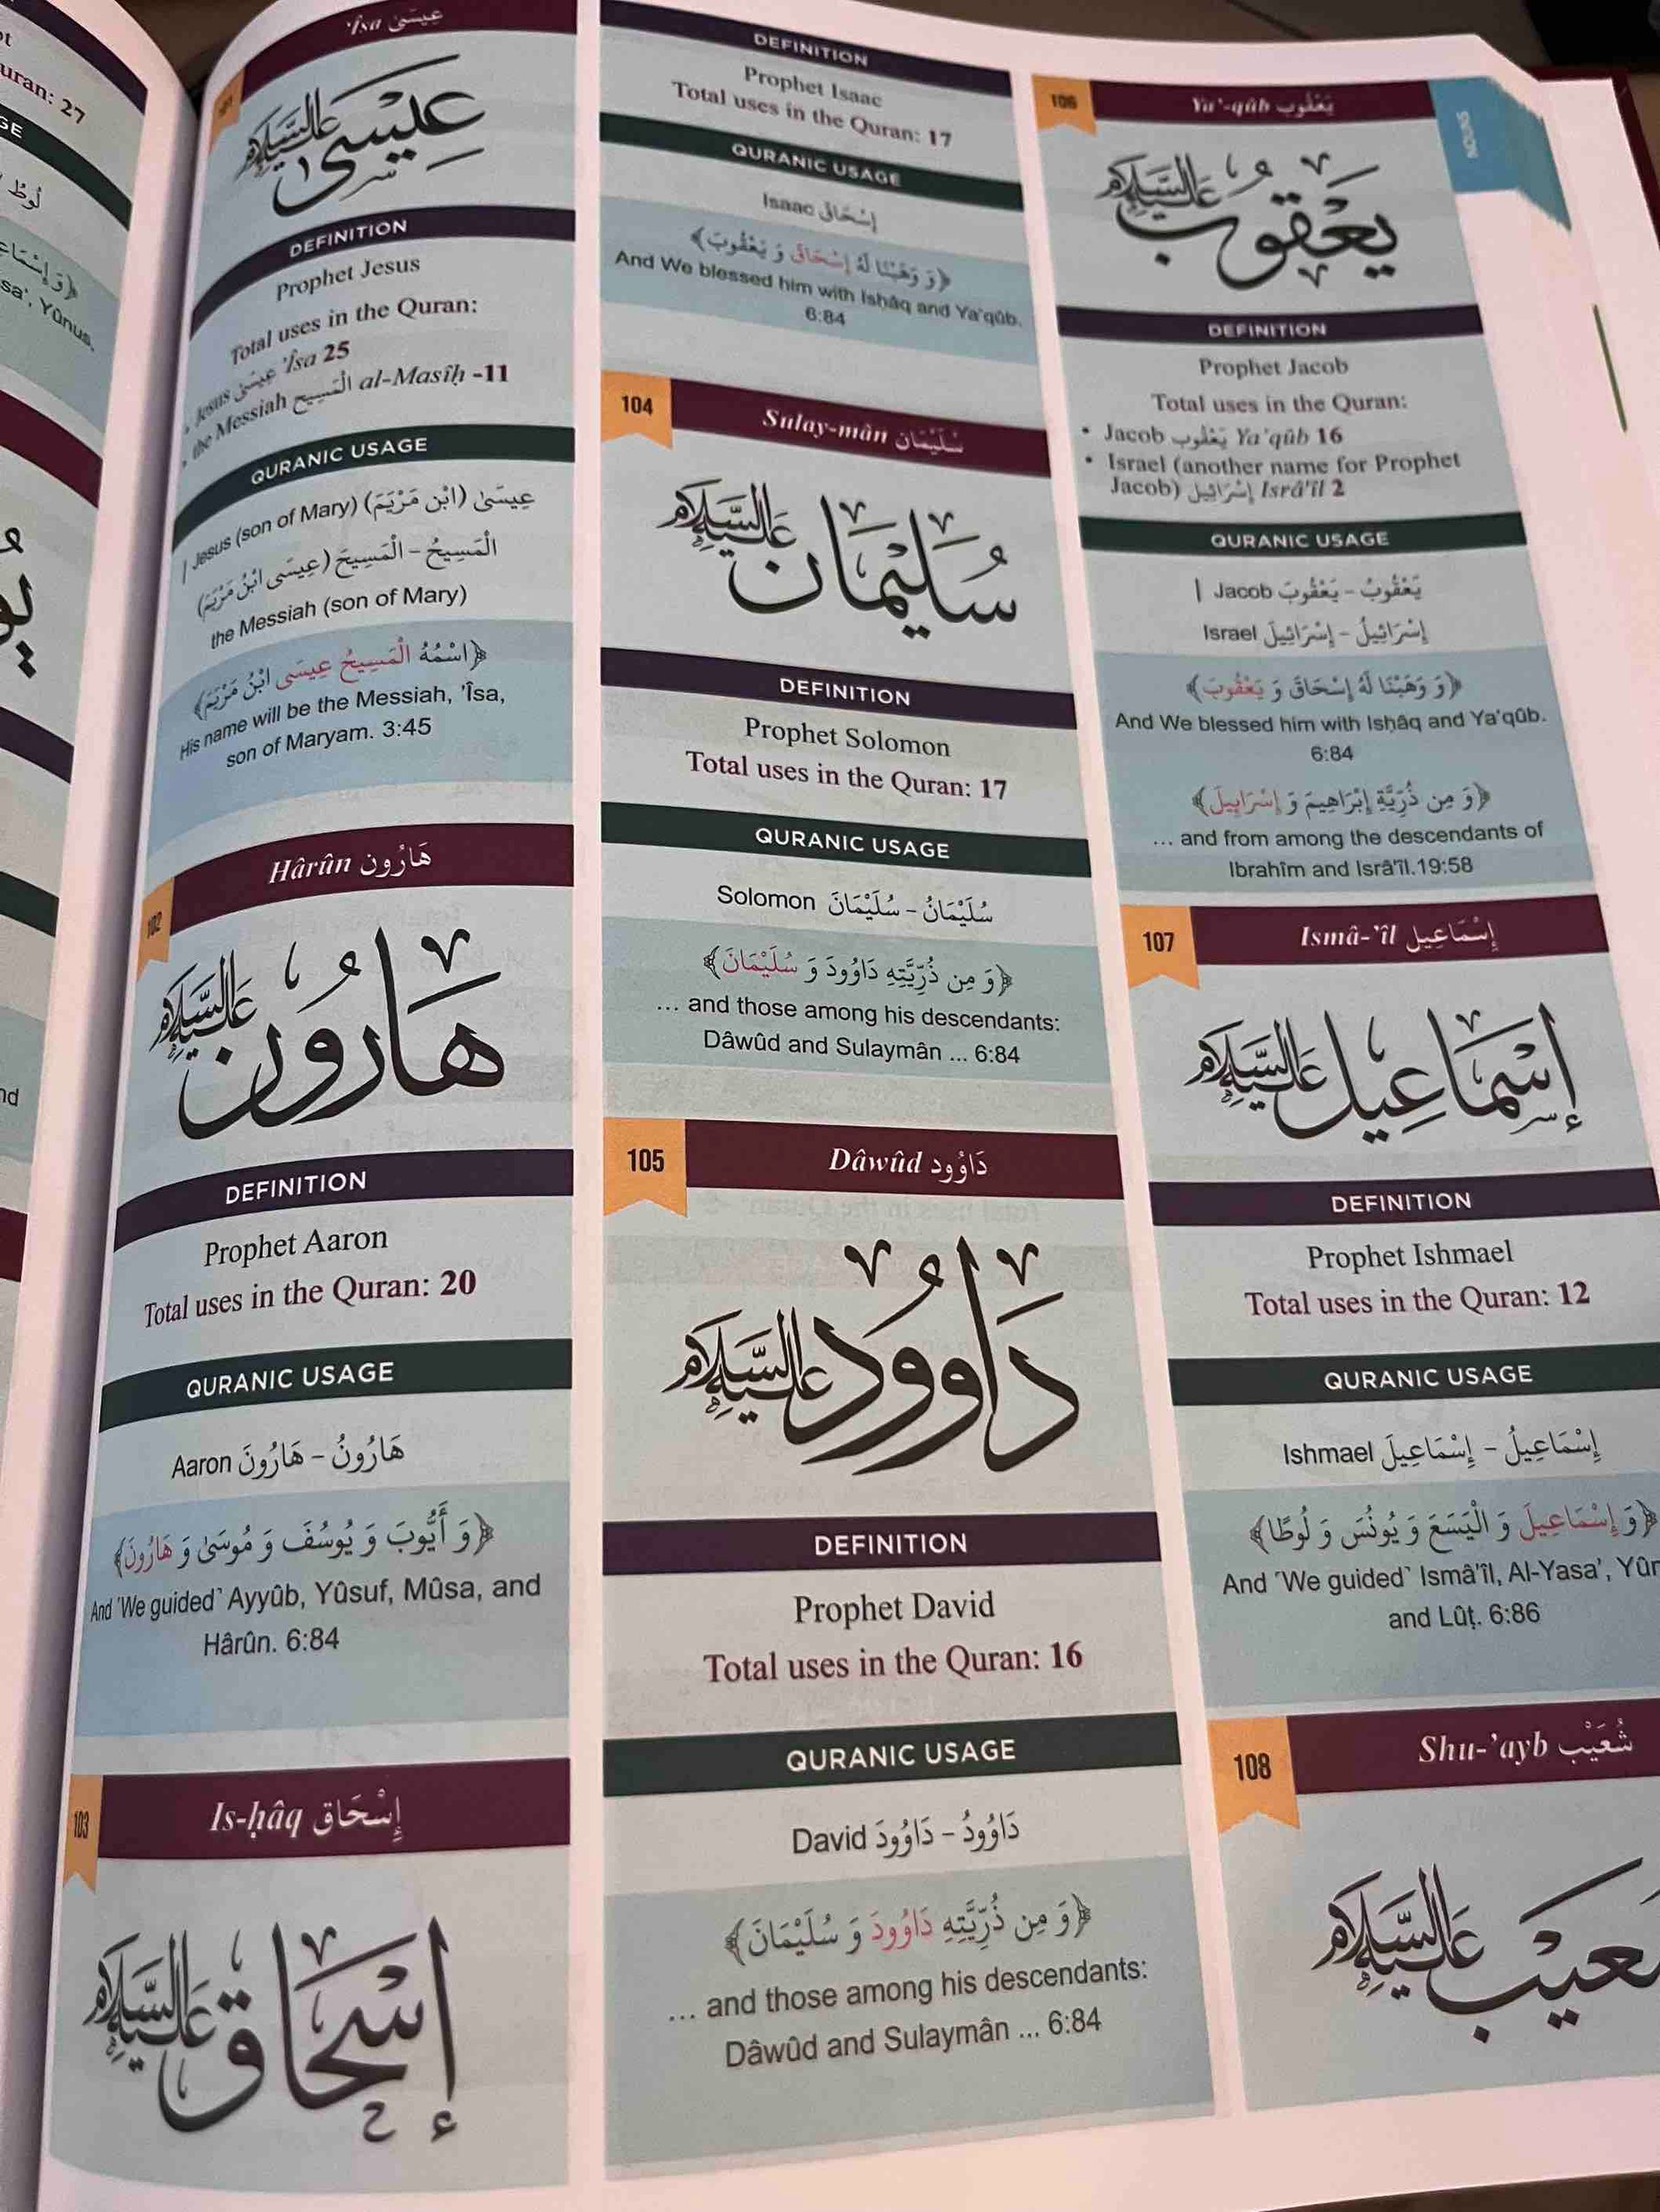 uran: 27
لُوطُ
sa', Yûnus,
'Îsa عِيسَىٰ
101
عِيسَىٰ عَلَيْهِ السَّلَام
DEFINITION
Prophet Jesus
Total uses in the Quran:
• Jesus عِيسَىٰ 'Îsa 25
• the Messiah الْمَسِيح al-Masîḥ -11
QURANIC USAGE
| Jesus (son of Mary) عِيسَىٰ (ابْن مَرْيَمَ)
الْمَسِيحُ – الْمَسِيحَ (عِيسَى ابْنُ مَرْيَمَ)
the Messiah (son of Mary)
﴿اسْمُهُ الْمَسِيحُ عِيسَى ابْنُ مَرْيَمَ﴾
His name will be the Messiah, 'Îsa,
son of Maryam. 3:45
102
Hârûn هَارُون
هَارُون عَلَيْهِ السَّلَام
DEFINITION
Prophet Aaron
Total uses in the Quran: 20
QURANIC USAGE
Aaron هَارُونُ – هَارُونَ
﴿وَ أَيُّوبَ وَ يُوسُفَ وَ مُوسَىٰ وَ هَارُونَ﴾
And ˹We guided˺ Ayyûb, Yûsuf, Mûsa, and
Hârûn. 6:84
103
Is-ḥâq إِسْحَاق
إِسْحَاق عَلَيْهِ السَّلَام
DEFINITION
Prophet Isaac
Total uses in the Quran: 17
QURANIC USAGE
Isaac إِسْحَاقَ
﴿وَ وَهَبْنَا لَهُ إِسْحَاقَ وَ يَعْقُوبَ﴾
And We blessed him with Isḥâq and Ya'qûb.
6:84
104
Sulay-mân سُلَيْمَان
سُلَيْمَان عَلَيْهِ السَّلَام
DEFINITION
Prophet Solomon
Total uses in the Quran: 17
QURANIC USAGE
Solomon سُلَيْمَانُ – سُلَيْمَانَ
﴿وَ مِن ذُرِّيَّتِهِ دَاوُودَ وَ سُلَيْمَانَ﴾
... and those among his descendants:
Dâwûd and Sulaymân ... 6:84
105
Dâwûd دَاوُود
دَاوُود عَلَيْهِ السَّلَام
DEFINITION
Prophet David
Total uses in the Quran: 16
QURANIC USAGE
David دَاوُودُ – دَاوُودَ
﴿وَ مِن ذُرِّيَّتِهِ دَاوُودَ وَ سُلَيْمَانَ﴾
... and those among his descendants:
Dâwûd and Sulaymân ... 6:84
NOUNS
106
Ya'-qûb يَعْقُوب
يَعْقُوب عَلَيْهِ السَّلَام
DEFINITION
Prophet Jacob
Total uses in the Quran:
• Jacob يَعْقُوب Ya'qûb 16
• Israel (another name for Prophet
Jacob) إِسْرَائِيل Isrâ'îl 2
QURANIC USAGE
| Jacob يَعْقُوبُ – يَعْقُوبَ
Israel إِسْرَائِيلُ – إِسْرَائِيلَ
﴿وَ وَهَبْنَا لَهُ إِسْحَاقَ وَ يَعْقُوبَ﴾
And We blessed him with Isḥâq and Ya'qûb.
6:84
﴿وَ مِن ذُرِّيَّةِ إِبْرَاهِيمَ وَ إِسْرَاءِيلَ﴾
... and from among the descendants of
Ibrahîm and Isrâ'îl.19:58
107
Ismâ-'îl إِسْمَاعِيل
إِسْمَاعِيل عَلَيْهِ السَّلَام
DEFINITION
Prophet Ishmael
Total uses in the Quran: 12
QURANIC USAGE
Ishmael إِسْمَاعِيلُ – إِسْمَاعِيلَ
﴿وَ إِسْمَاعِيلَ وَ الْيَسَعَ وَ يُونُسَ وَ لُوطًا﴾
And ˹We guided˺ Ismâ'îl, Al-Yasa', Yûn
and Lûṭ. 6:86
108
Shu-'ayb شُعَيْب
عَلَيْهِ السَّلَام